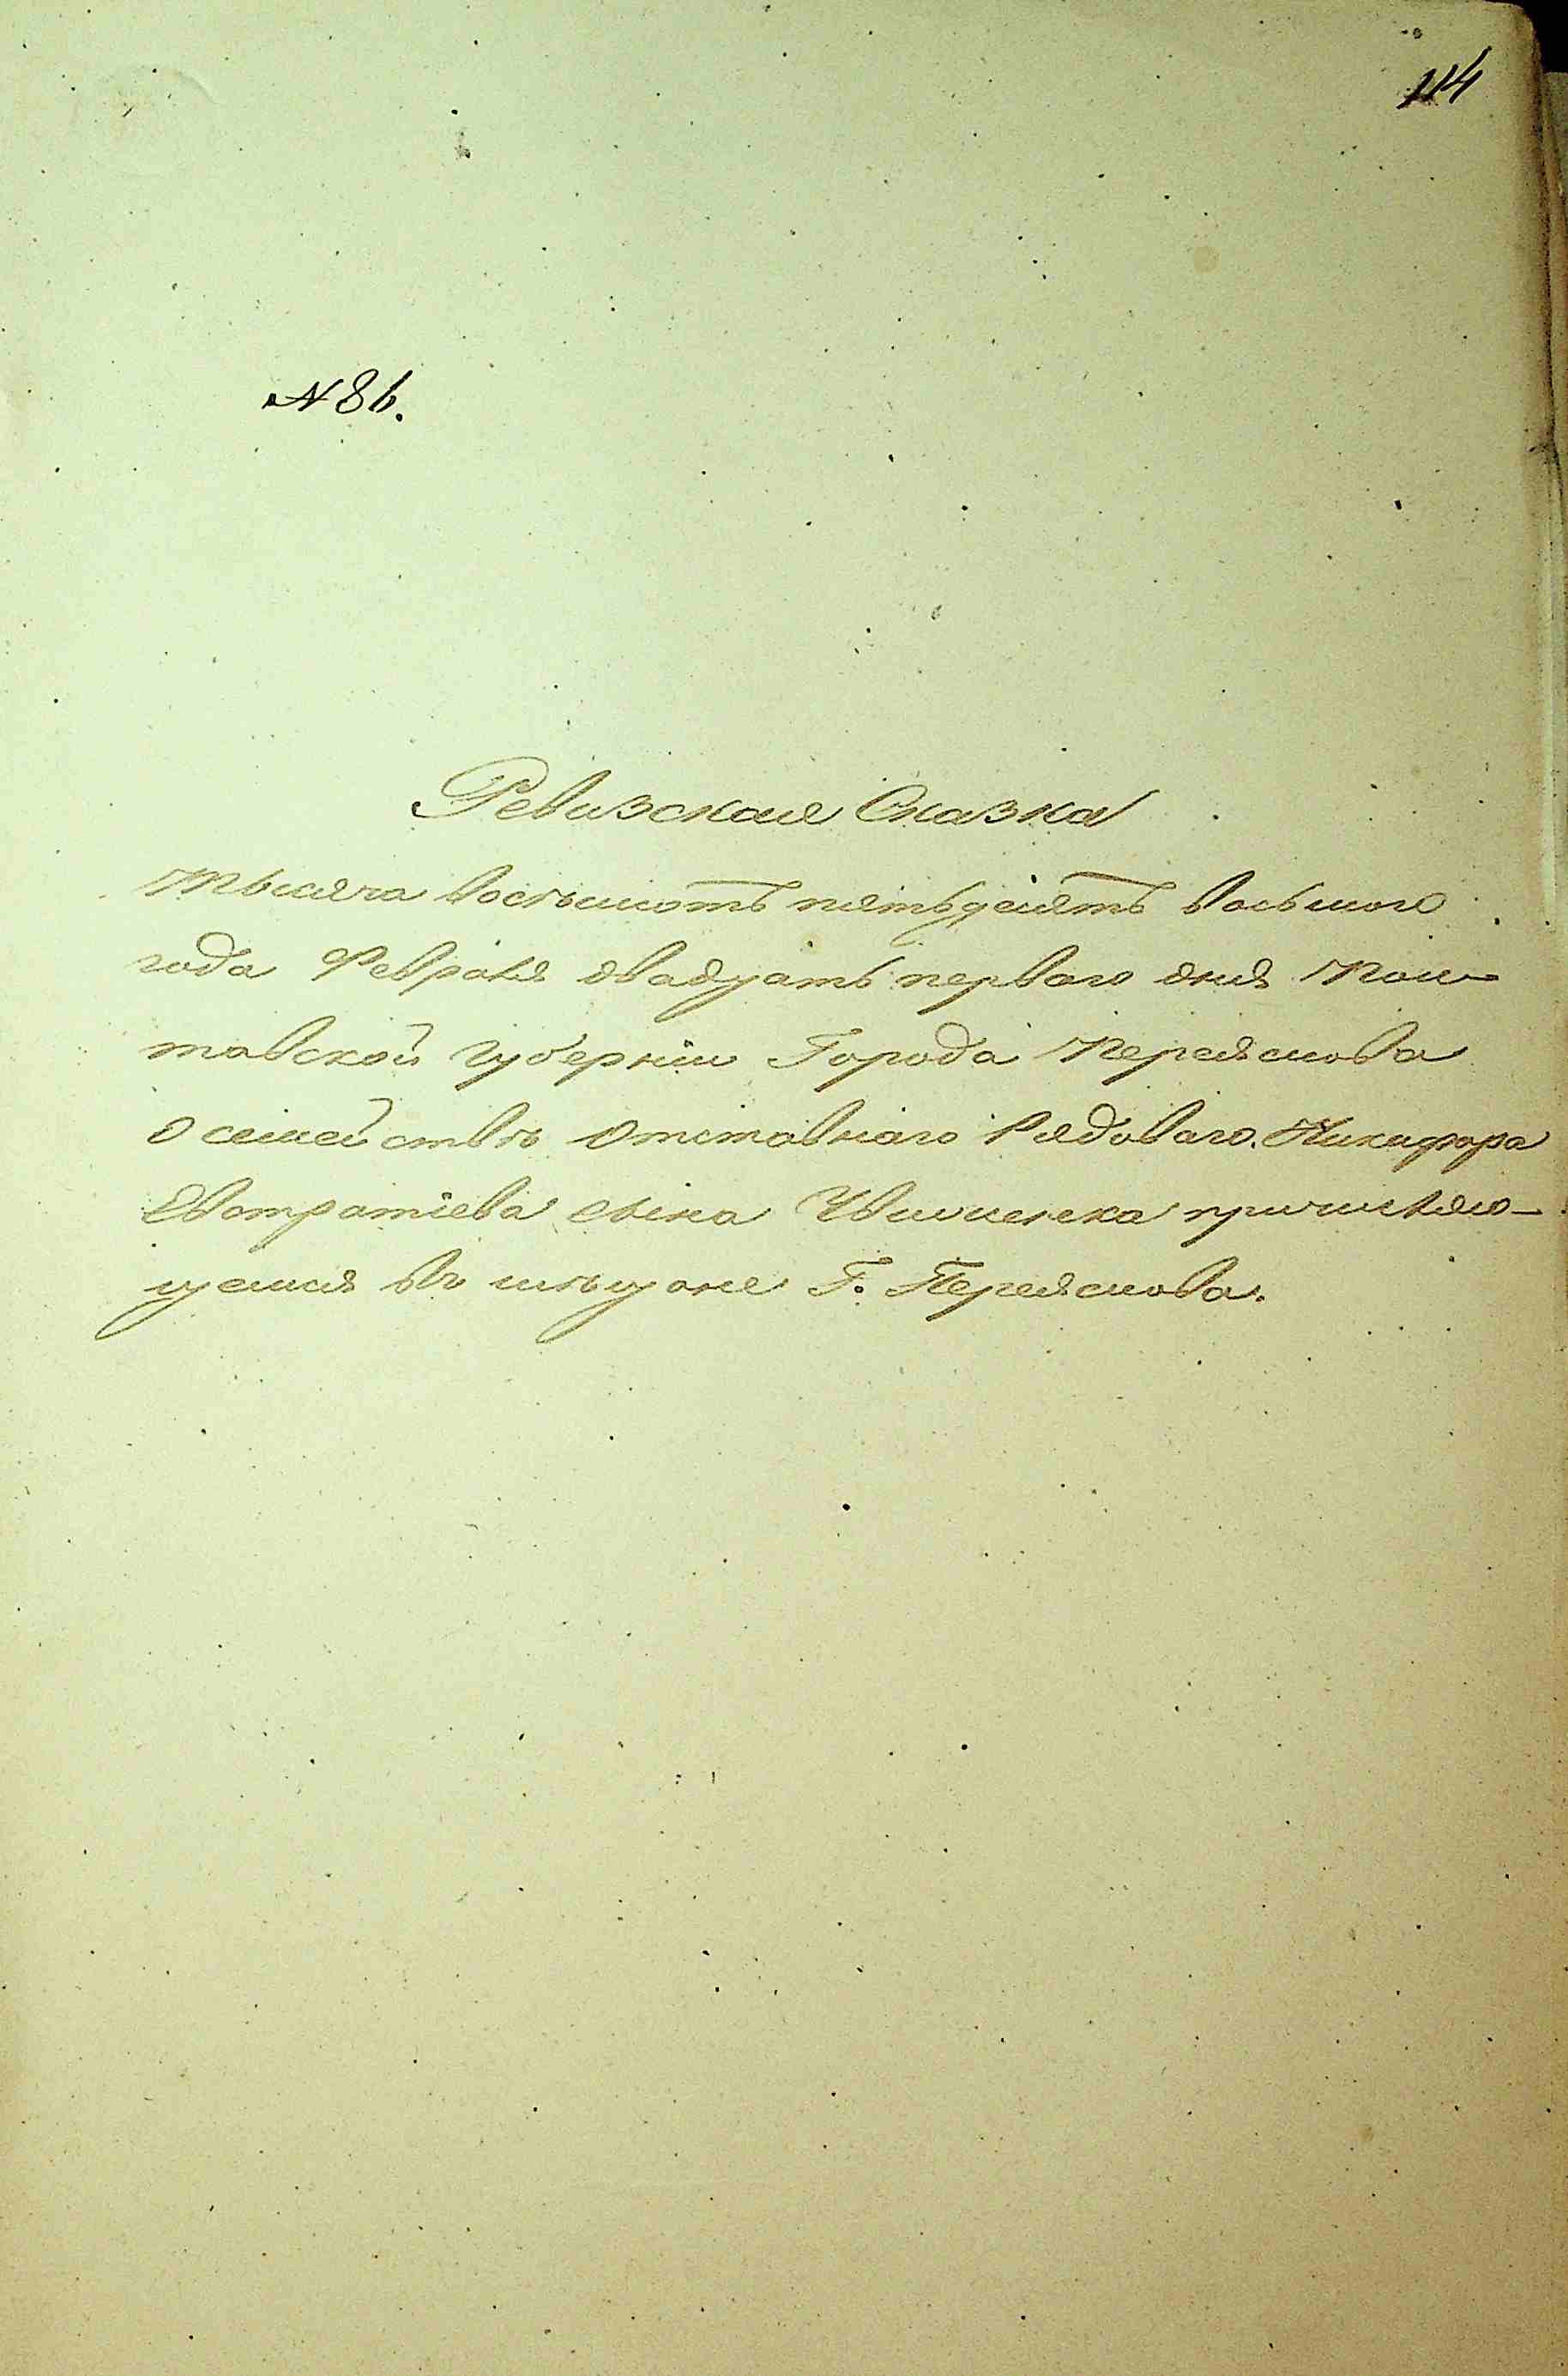 114
№ 86.
Ревизская Сказка
Тысяча восѣмсотъ пятьдесятъ восьмого
года Февраля двадцать перваго дня Пол-
тавской губерніи Города Переяслова
О семействѣ Отставнаго Рядоваго Никифора
Евстратіева сына причисляю-
щемся въ мѣщане Г. Переяслова.